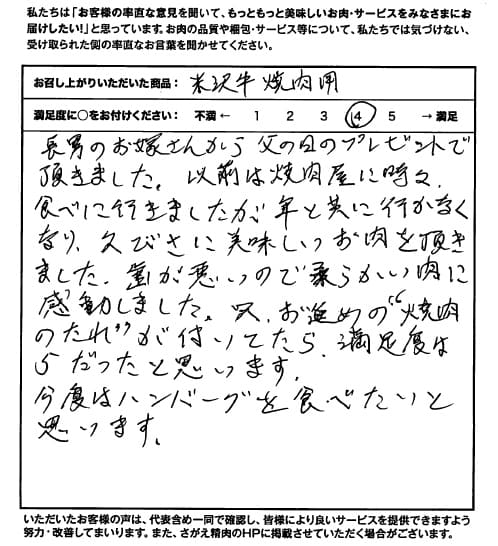 私たちは「お客様の率直な意見を聞いて、もっともっと美味しいお肉・サービスをみなさまにお
届けしたい!」と思っています。お肉の品質や梱包・サービス等について、私たちでは気づけない、
受け取られた側の率直なお言葉を聞かせてください。
お召し上がりいただいた商品： 米沢牛 焼肉用
満足度に○をお付けください： 不満 ← 1 2 3 4 5 → 満足
長男のお嫁さんから 父の日のプレゼントで
頂きました。以前は焼肉屋に時々、
食べに行きましたが 年と共に行かなく
なり、久びさに美味しいお肉を頂き
ました。歯が悪いので柔らかい肉に
感動しました。又、お進めの“焼肉
のたれ”が付いてたら、満足度は
5だったと思います。
今度はハンバーグを食べたいと
思います。
いただいたお客様の声は、代表含め一同で確認し、皆様により良いサービスを提供できますよう
努力・改善してまいります。また、さがえ精肉のHPに掲載させていただく場合がございます。